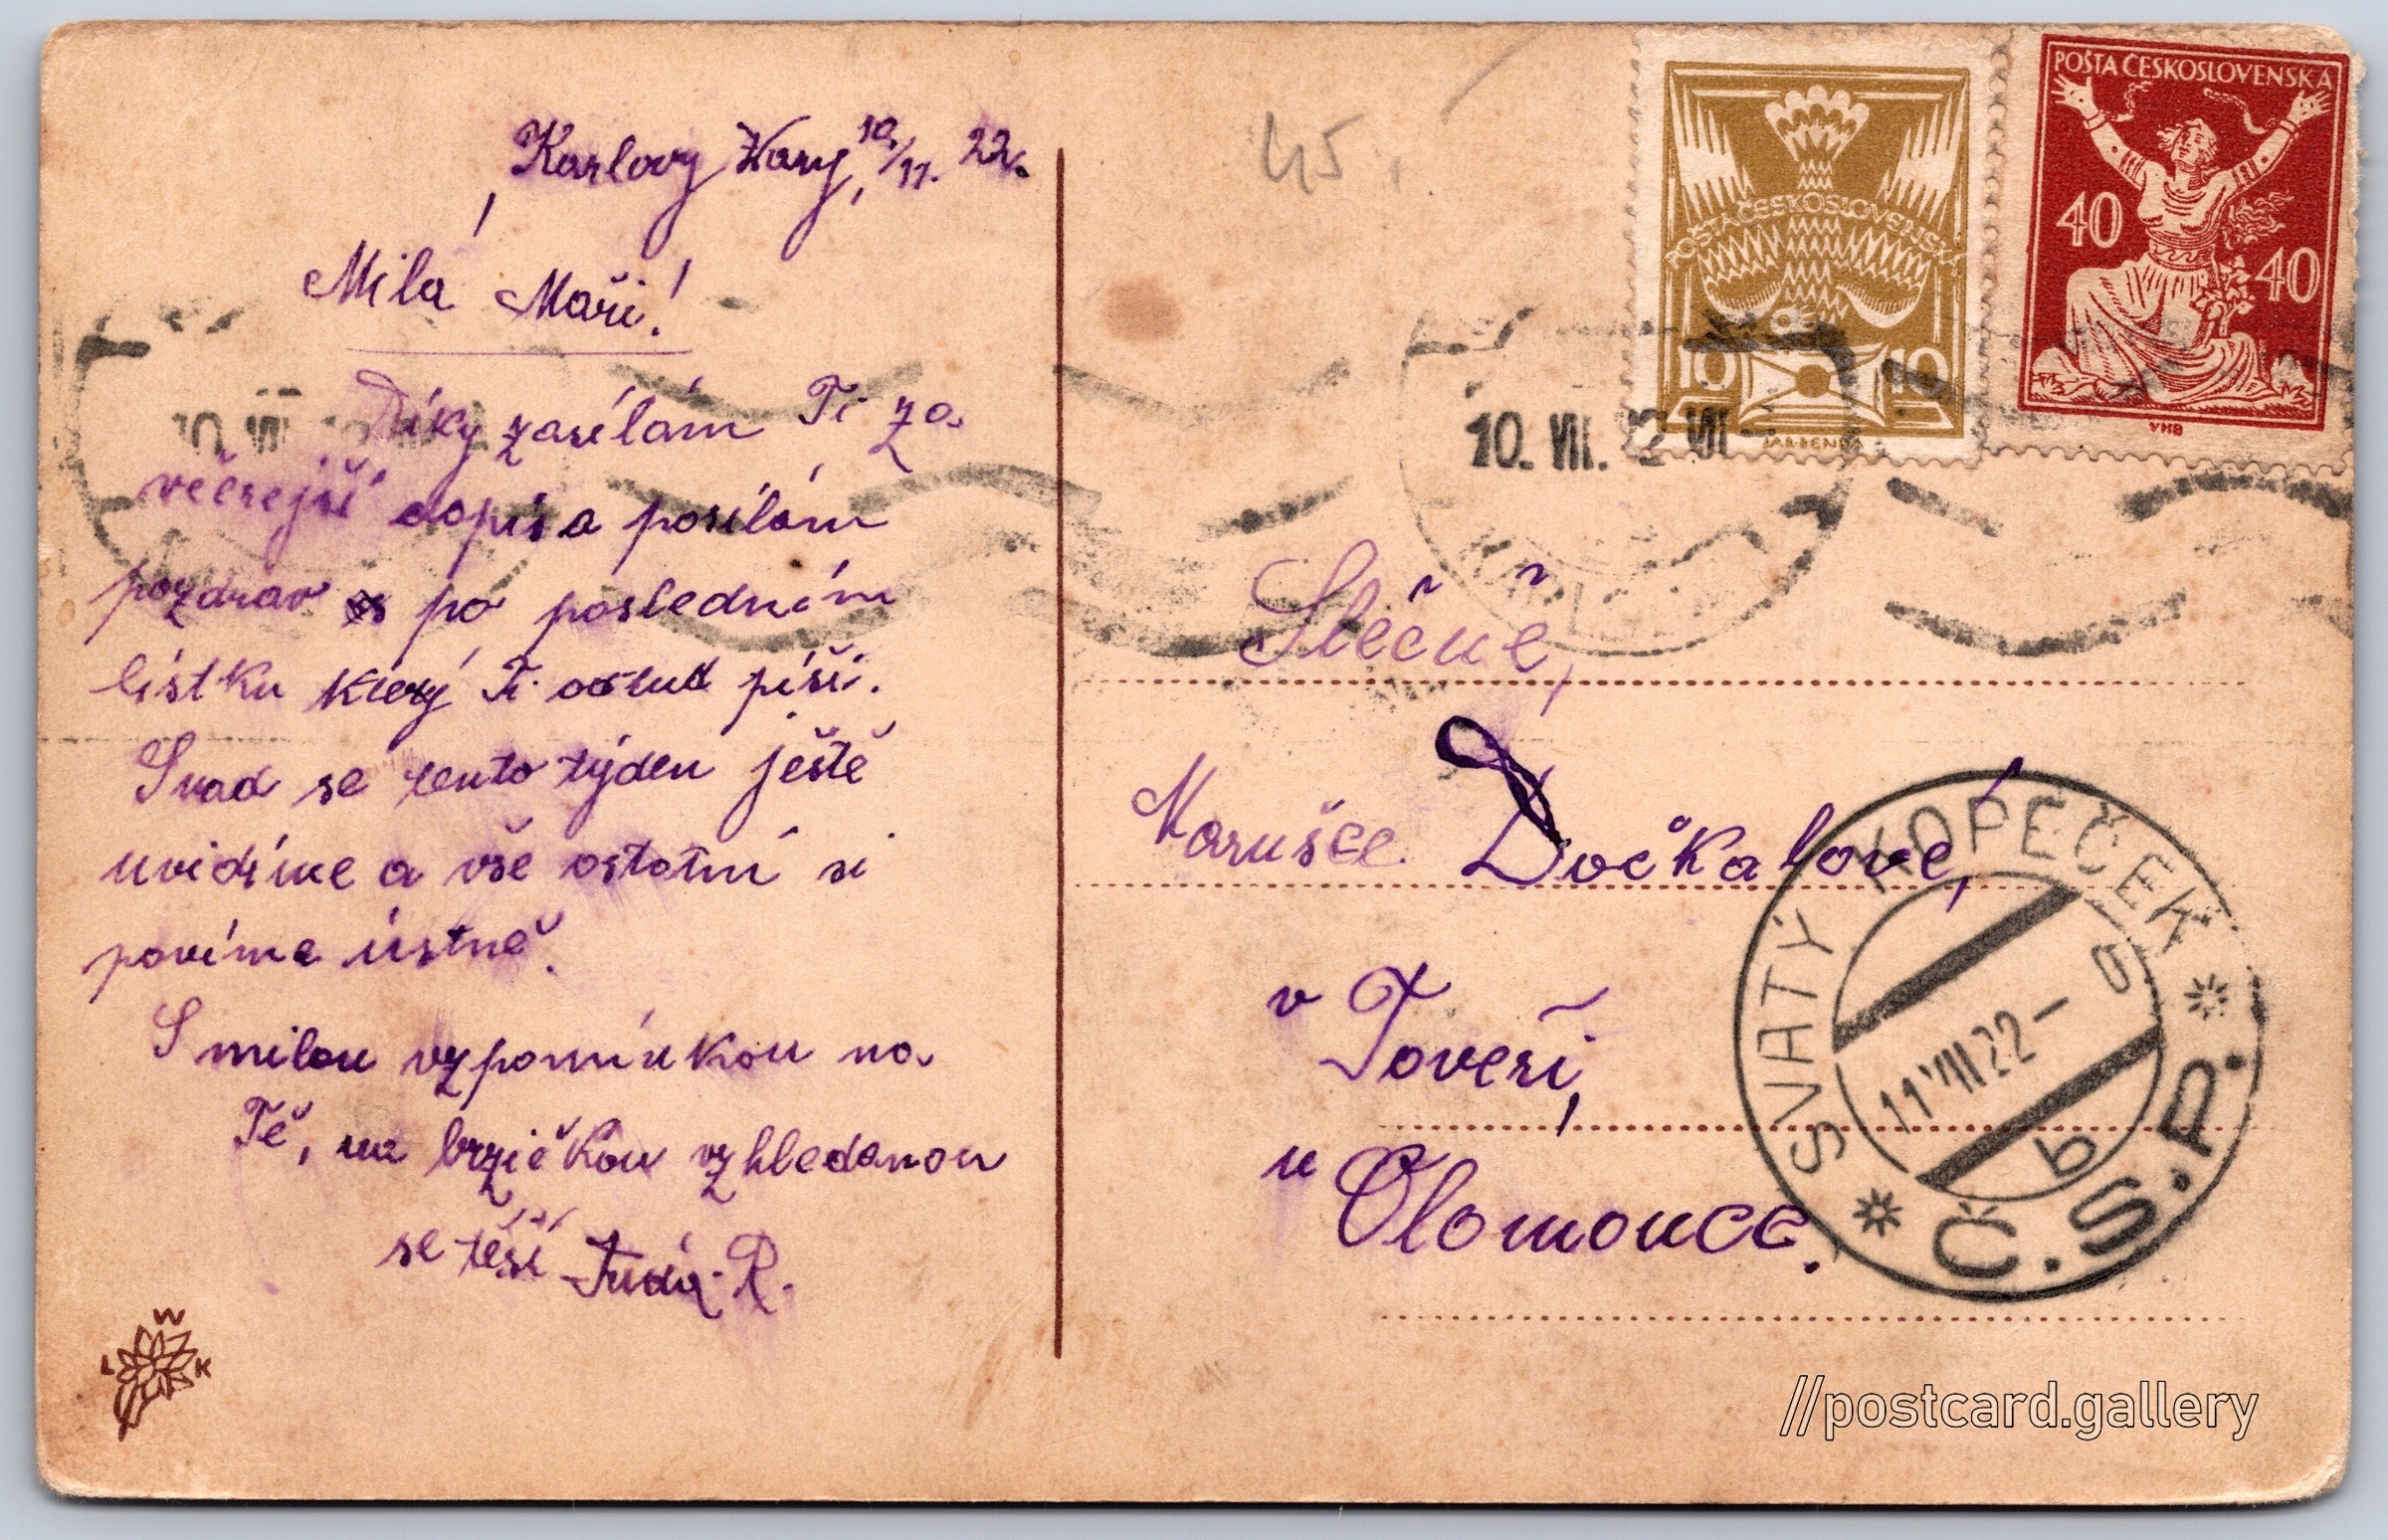 Karlovy Vary, 10/11. 22.
Milá Maři!
Díky zasílám Ti za
včerejší dopis a posílám
pozdrav po posledním
lístku který Ti odtud píši.
Snad se tento týden ještě
uvidíme a vše ostatní si
povíme ústně.
S milou vzpomínkou na
Tě, na brzičkou vzhledanou
se těší R.
W
L K
45
POŠTA ČESKOSLOVENSKÁ
10 10
POŠTA ČESKOSLOVENSKÁ
40
40
VHB
10. VII. 22 VII
Slečně,
Marušce Dočkalové,
v Toveři,
u Olomouce.
SVATÝ KOPEČEK
11 VII 22 –
b
Č.S.P.
//postcard.gallery